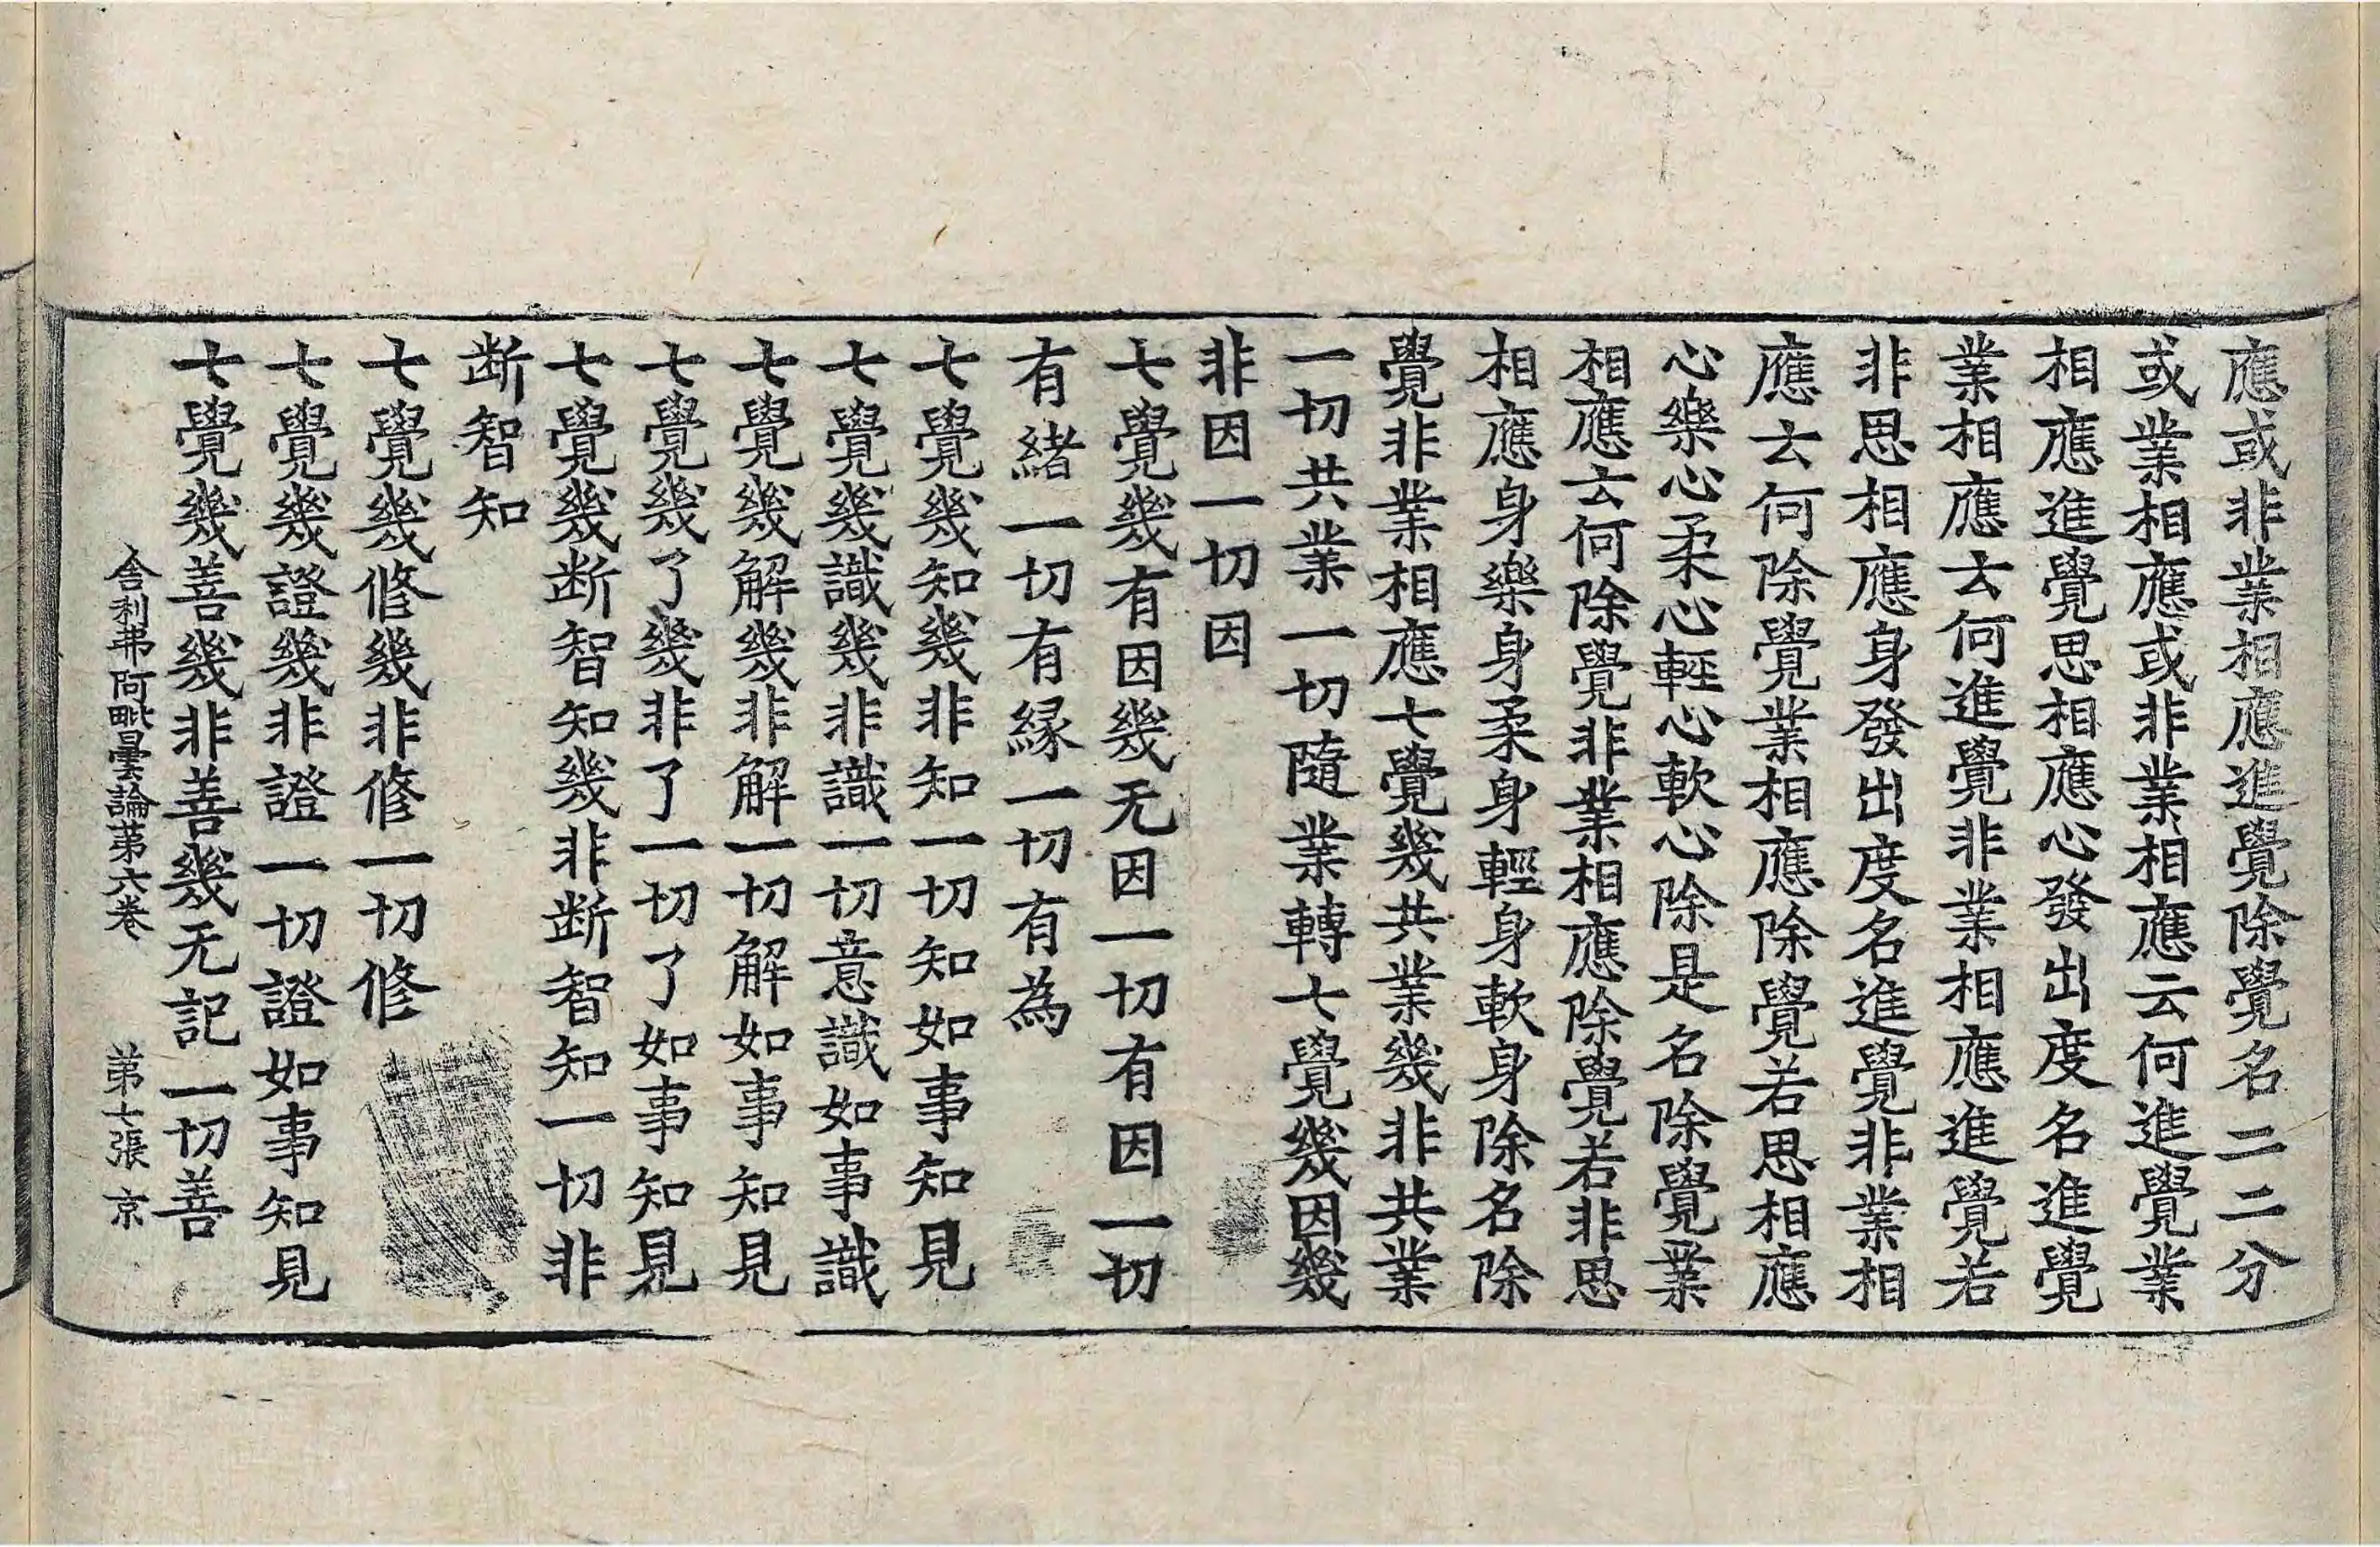 應或非業相應進覺除覺名二二分
或業相應或非業相應云何進覺業
相應進覺思相應心發出度名進覺
業相應云何進覺非業相應進覺若
非思相應身發出度名進覺非業相
應云何除覺業相應除覺若思相應
心樂心柔心輕心軟心除是名除覺業
相應云何除覺非業相應除覺若非思
相應身樂身柔身輕身軟身除名除
覺非業相應七覺幾共業幾非共業
一切共業一切隨業轉七覺幾因幾
非因一切因
七覺幾有因幾无因一切有因一切
有緒一切有縁一切有為
七覺幾知幾非知一切知如事知見
七覺幾識幾非識一切意識如事識
七覺幾解幾非解一切解如事知見
七覺幾了幾非了一切了如事知見
七覺幾断智知幾非断智知一切非
断智知
七覺幾修幾非修一切修
七覺幾證幾非證一切證如事知見
七覺幾善幾非善幾无記一切善
舍利弗阿毗曇論苐六卷 苐七張 京